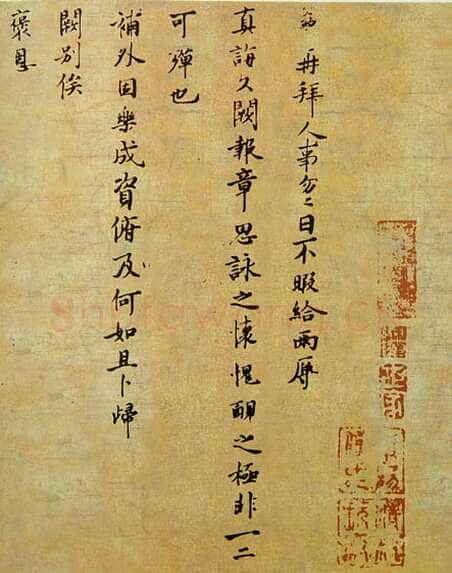 再拜人事匆〻日不暇給兩辱
真誨久闕報章思詠之懷愧靦之極非一二
可殫也
補外因樂成資俯及何如且卜歸
闕別俟
褒恩